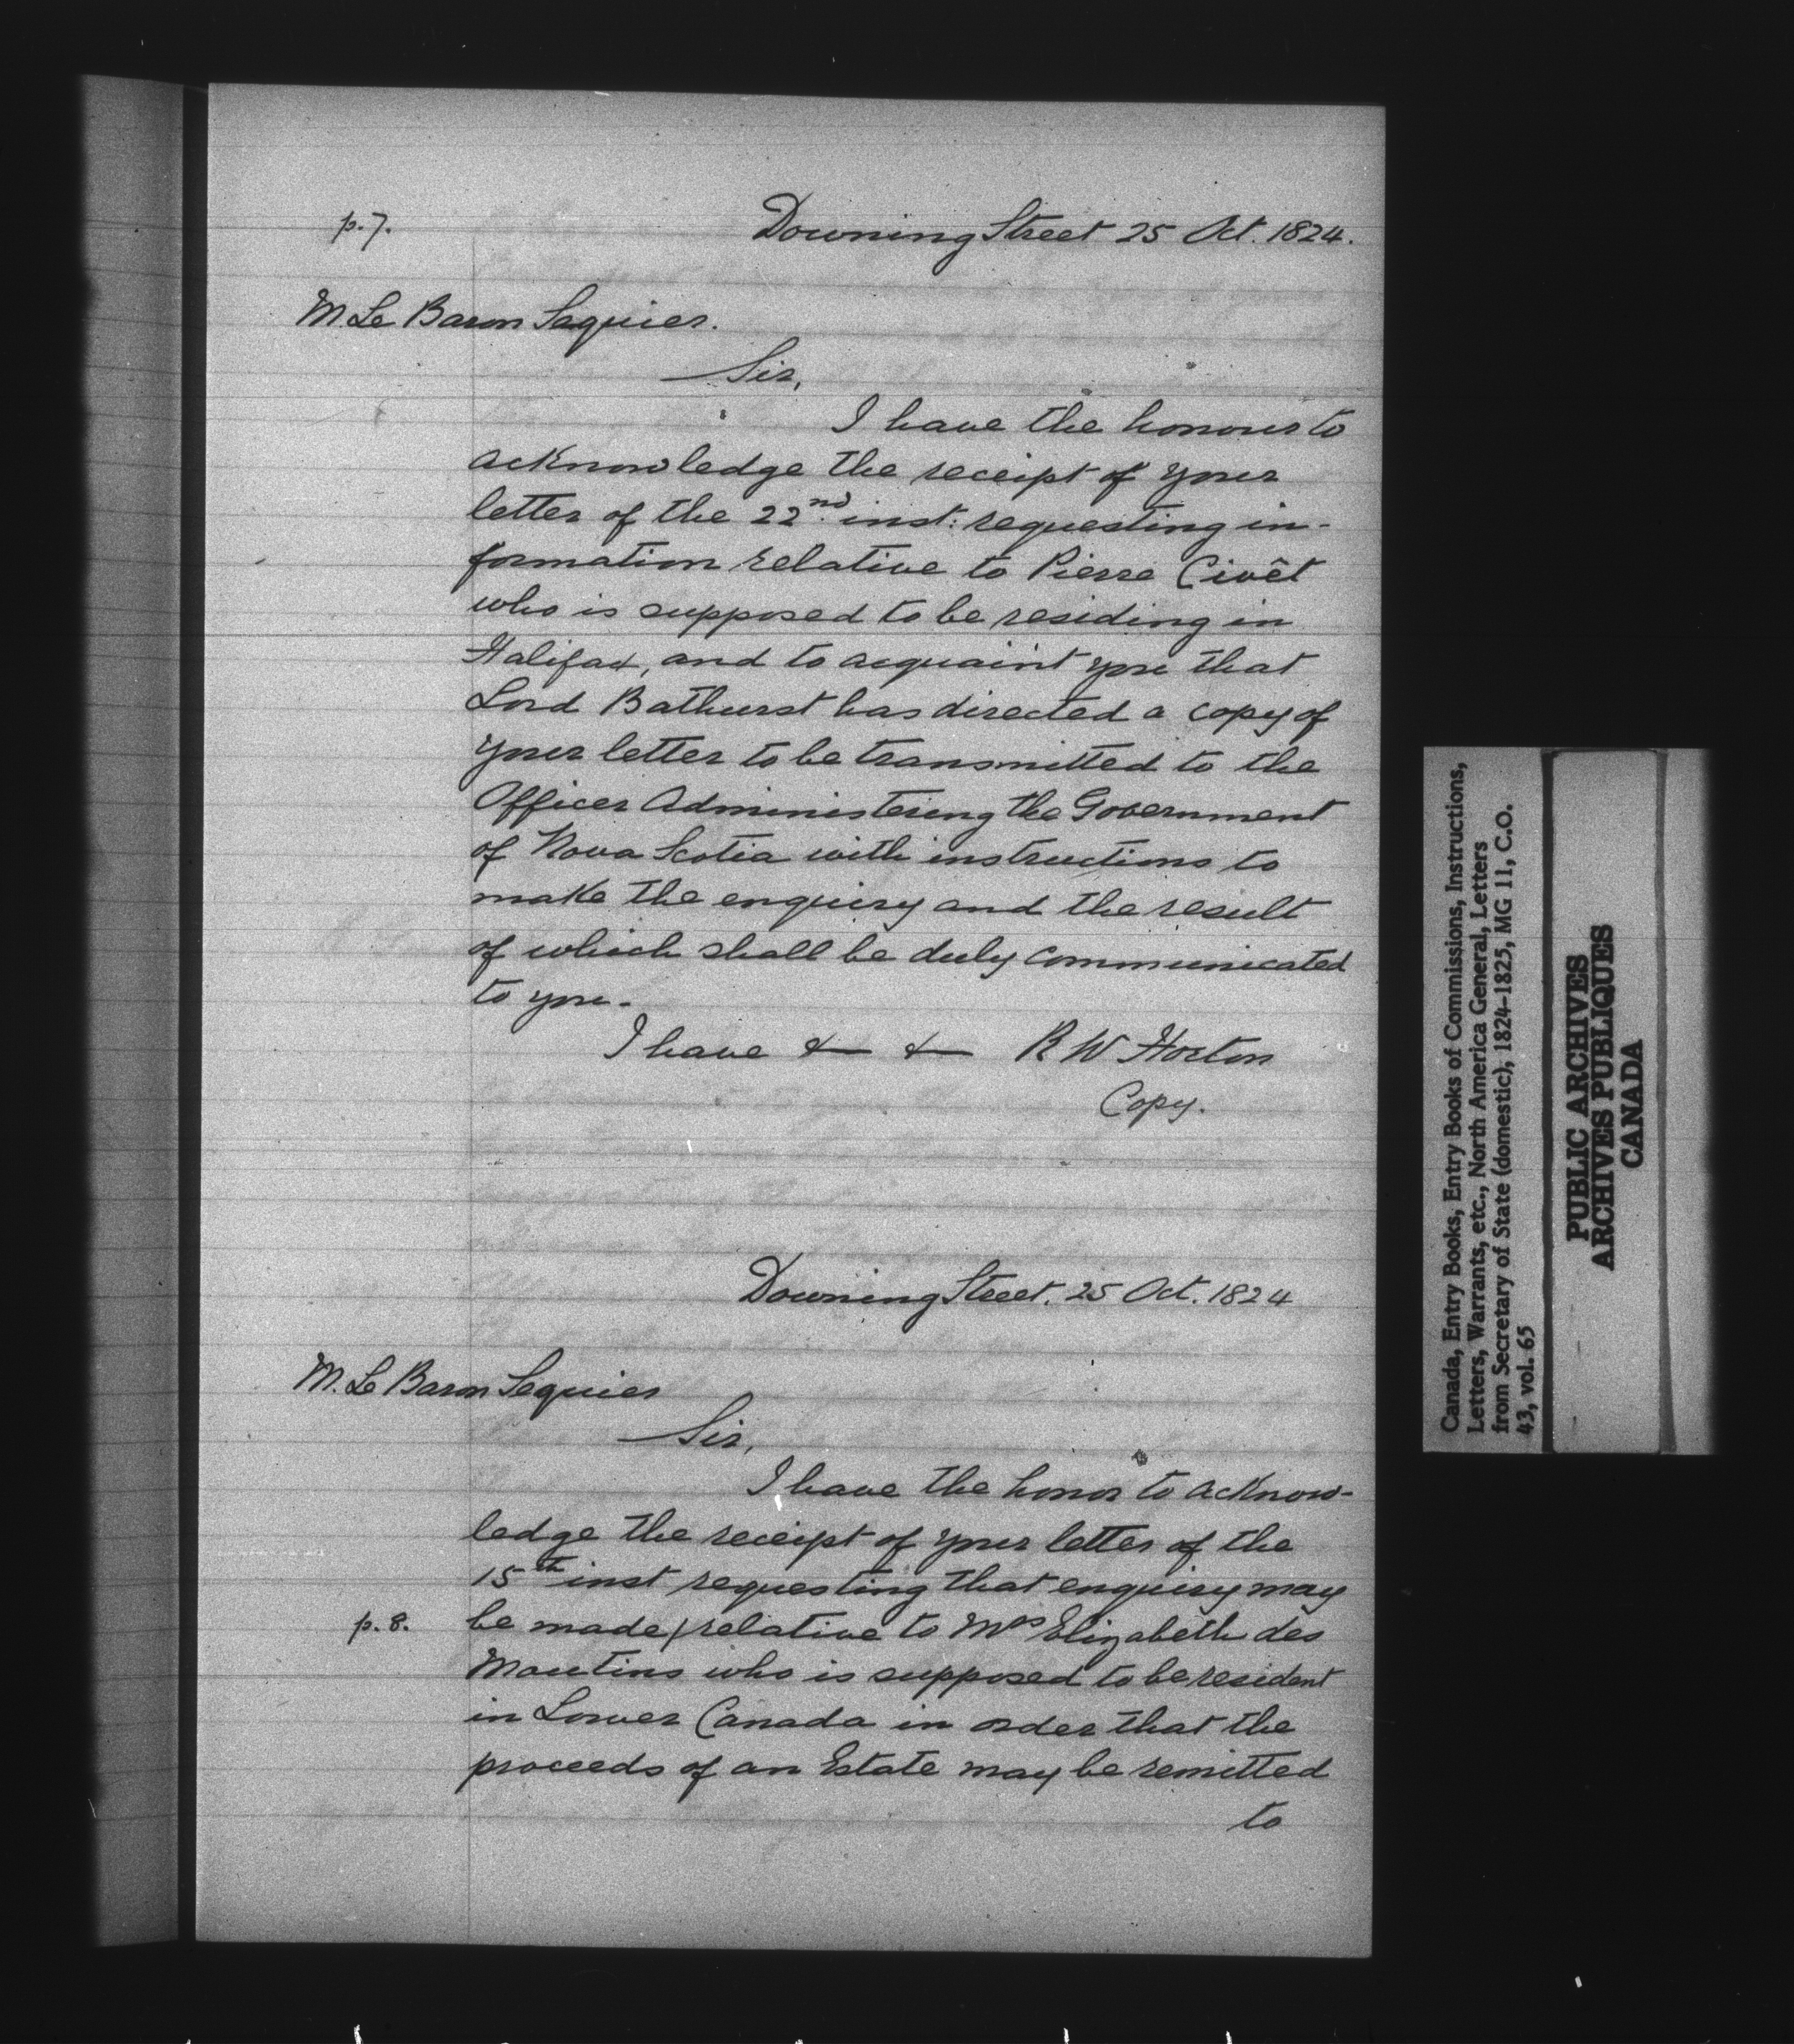 p.7.
Downing Street 25 Oct. 1824.
M Le Baron Seguier.
Sir,
I have the honour to
acknowledge the receipt of your
letter of the 22nd. inst: requesting in-
formation relative to Pierre Civêt
who is supposed to be residing in
Halifax, and to acquaint you that
Lord Bathurst has directed a copy of
your letter to be transmitted to the
Officer Administering the Government
of Nova Scotia with instructions to
make the enquiry and the result
of which shall be duly communicated
to you.
I have & & R W Horton
Copy.
Downing Street. 25 Oct. 1824
M. Le Baron Seguier
Sir,
I have the honor to acknow-
ledge the receipt of your letter of the
15th inst requesting that enquiry may
p. 8. be made/relative to Mrs Elizabeth des
Moutins who is supposed to be resident
in Lower Canada in order that the
proceeds of an Estate may be remitted
to
Canada, Entry Books, Entry Books of Commissions, Instructions,
Letters, Warrants, etc., North America General, Letters
from Secretary of State (domestic), 1824-1825, MG 11, C.O.
43, vol. 65
PUBLIC ARCHIVES
ARCHIVES PUBLIQUES
CANADA